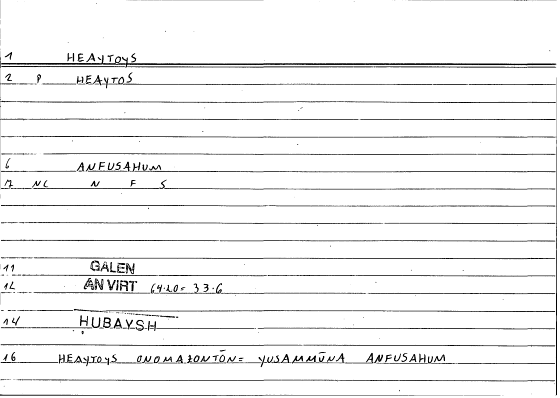 1 HEAYTOYS
2 P HEAYTOS
6 ANFUSAHUM
7 NC N F S
11 GALEN
12 AN VIRT 64.20= 33.6
14 ḤUBAYSH
16 HEAYTOYS ONOMAZONTŌN= YUSAMMŪNA ANFUSAHUM